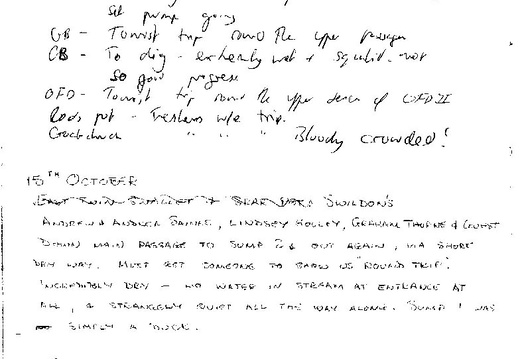 Set pump going
GB - Tourist trip round the upper passages
CB - To dig - extremely wet & squalid - not
so good progress
OFD - Tourist trip round the upper series of OFD II
Rods pot - Freshers w/e trip.
" " " Bloody crowded!
15TH OCTOBER
SWILDON'S
LINDSEY HOLLEY, GRAHAM THORNE &
DOWN MAIN PASSAGE TO SUMP 2 & OUT AGAIN, VIA SHORT
DRY WAY. MUST GET SOMEONE TO SHOW US "ROUND TRIP".
INCREDIBLY DRY - NO WATER IN STREAM AT ENTRANCE AT
ALL, & STRANGELY QUIET ALL THE WAY ALONG. SUMP 1 WAS
SIMPLY A DUCK.